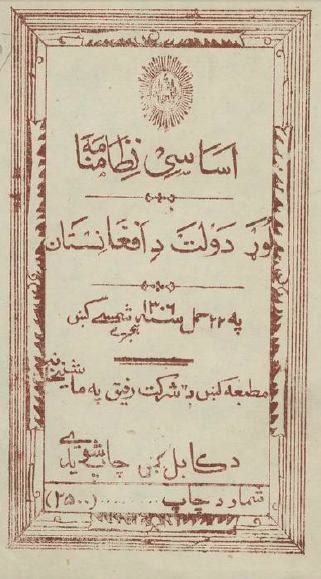 اساسي نظامنامه
لوړ دولت د افغانستان
په ۲۲ حمل سنه ۱۳۰۶ هجري شمسي کښ
مطبعه کښ د شرکت رفیق په ماشینخانه
د کابل کښ چاپ شویده
شمار د چاپ .......... (۲۵۰۰)